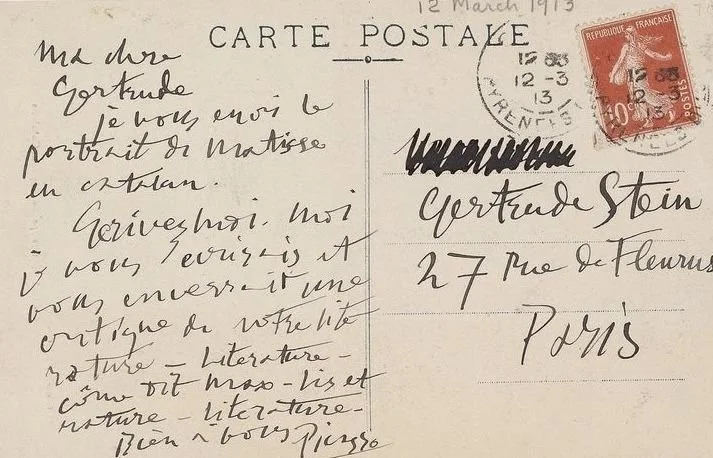 12 March 1913
CARTE POSTALE
REPUBLIQUE FRANÇAISE
POSTES
10c
12-3
13
PYRENEES
12-3
13
ma chere
Gertrude
je vous envois le
portrait de Matisse
en catalan.
Ecrivez moi. moi
je vous ecrirais et
vous enverrait une
critique de votre lite
rature - Literature -
come dit Max - Lis et
rature - Literature -
Bien a vous Picasso
Gertrude Stein
27 rue de Fleurus
Paris